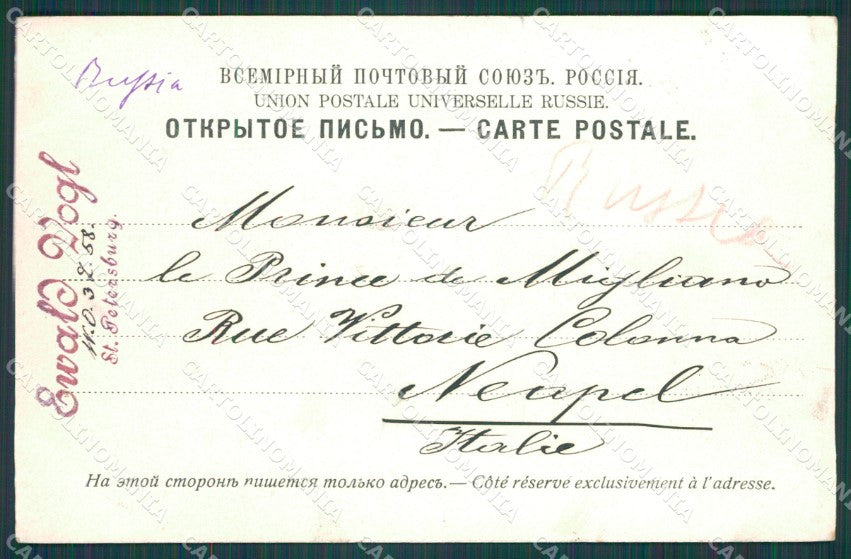 Russia
ВСЕМІРНЫЙ ПОЧТОВЫЙ СОЮЗЪ. РОССІЯ.
UNION POSTALE UNIVERSELLE RUSSIE.
ОТКРЫТОЕ ПИСЬМО. — CARTE POSTALE.
Russia
Monsieur
le Prince de Migliano
Rue Vittorie Colonna
Neapel
Italie
Ewald Vogl
W.O. 3 L. 58.
St. Petersburg.
На этой сторонѣ пишется только адресъ. — Côté réservé exclusivement à l'adresse.
CARTOLINOMANIA